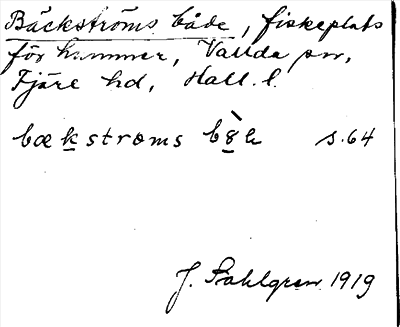 Bäckströms både, fiskeplats
för hummer, Vallda sn,
Fjäre hd, Hall. l.
bækstroms s. 64
J. Sahlgren 1919